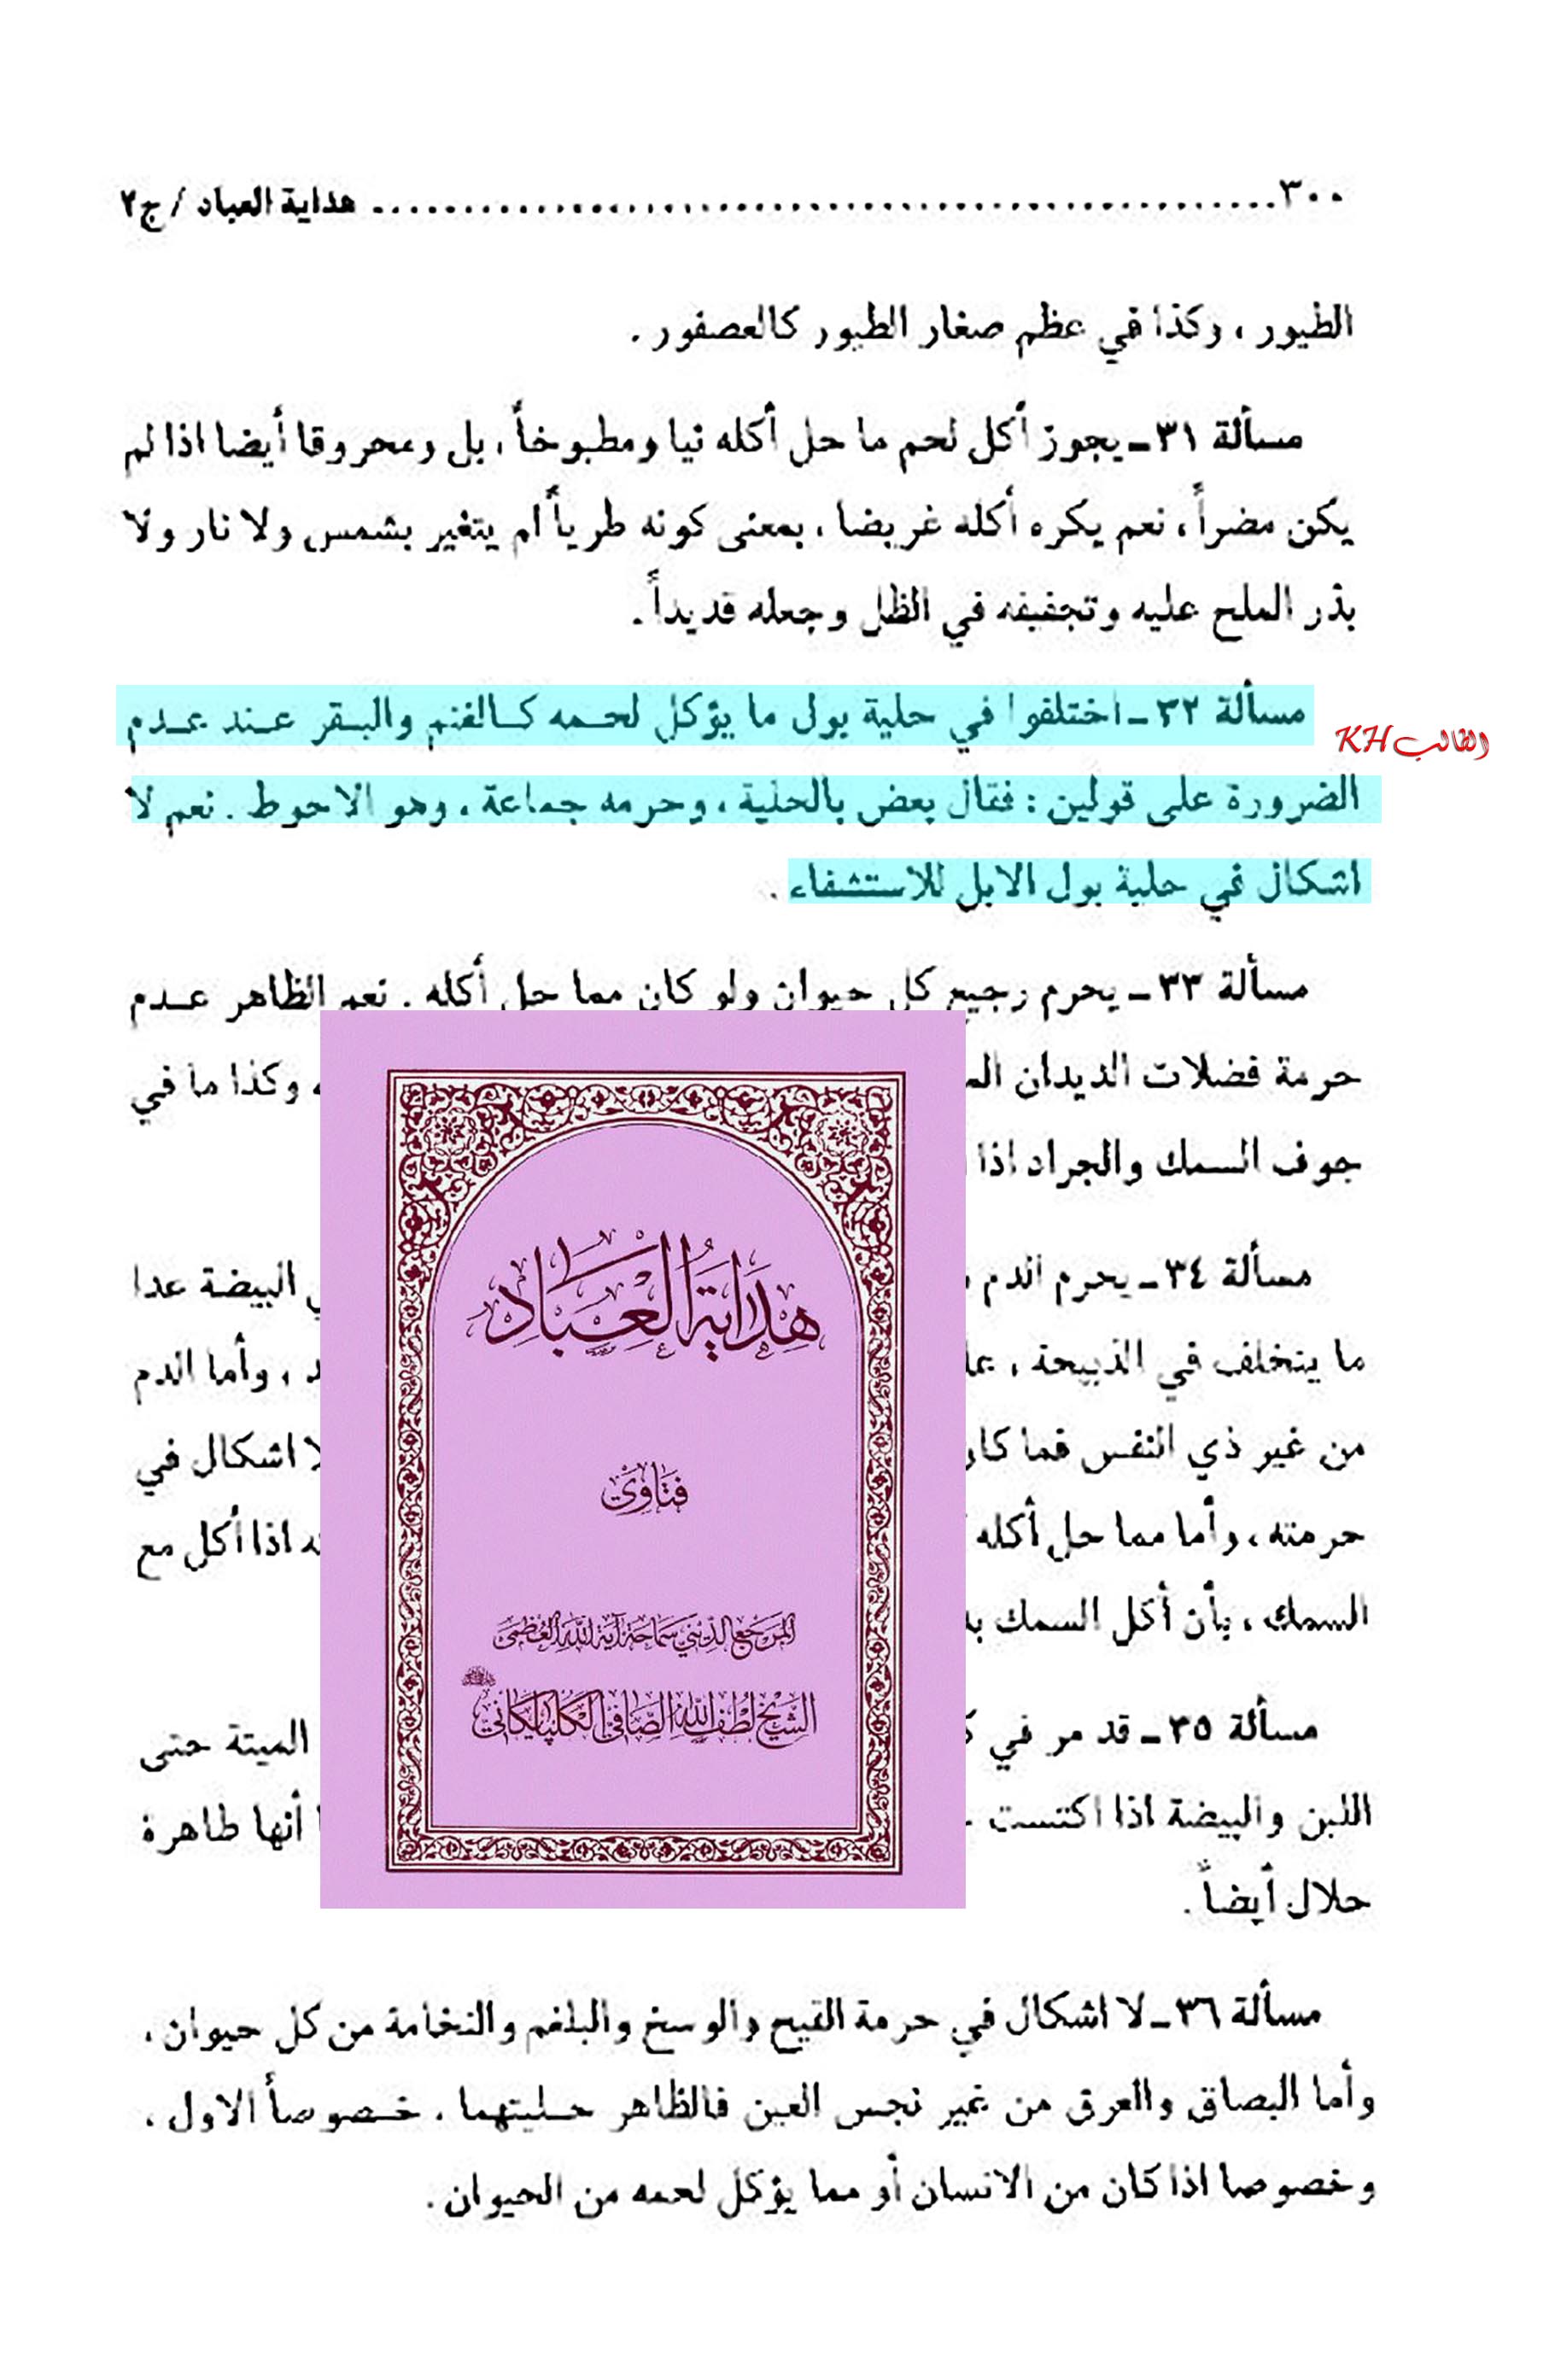 ٣٠٠ ........................................................ هداية العباد / ج٢
الطيور ، وكذا في عظم صغار الطيور كالعصفور .
مسألة ٣١ ـ يجوز أكل لحم ما حل أكله نيا ومطبوخاً ، بل ومحروقا أيضا اذا لم
يكن مضراً ، نعم يكره أكله غريضا ، بمعنى كونه طرياً لم يتغير بشمس ولا نار ولا
بذر الملح عليه وتجفيفه في الظل وجعله قديداً .
مسألة ٣٢ ـ اختلفوا في حلية بول ما يؤكل لحمه كالغنم والبقر عند عدم
الطالب KH
الضرورة على قولين : فقال بعض بالحلية ، وحرمه جماعة ، وهو الاحوط . نعم لا
اشكال في حلية بول الابل للاستشفاء .
مسألة ٣٣ ـ يحرم رجيع كل حيوان ولو كان مما حل أكله . نعم الظاهر عدم
حرمة فضلات الديدان وكذا ما في
جوف السمك والجراد اذا
مسألة ٣٤ ـ يحرم الدم البيضة عدا
ما يتخلف في الذبيحة ، ، وأما الدم
من غير ذي النفس فما لا اشكال في
حرمته ، وأما مما حل أكله اذا أكل مع
السمك ، بأن أكل السمك
مسألة ٣٥ ـ قد مر في الميتة حتى
اللبن والبيضة اذا اكتست أنها طاهرة
حلال أيضاً .
مسألة ٣٦ ـ لا اشكال في حرمة القيح والوسخ والبلغم والنخامة من كل حيوان ،
وأما البصاق والعرق من غير نجس العين فالظاهر حليتهما ، خصوصاً الاول ،
وخصوصا اذا كان من الانسان أو مما يؤكل لحمه من الحيوان .
هداية العباد
فتاوى
المرجع الديني سماحة آية الله العظمى
الشيخ لطف الله الصافي الكلپايكاني